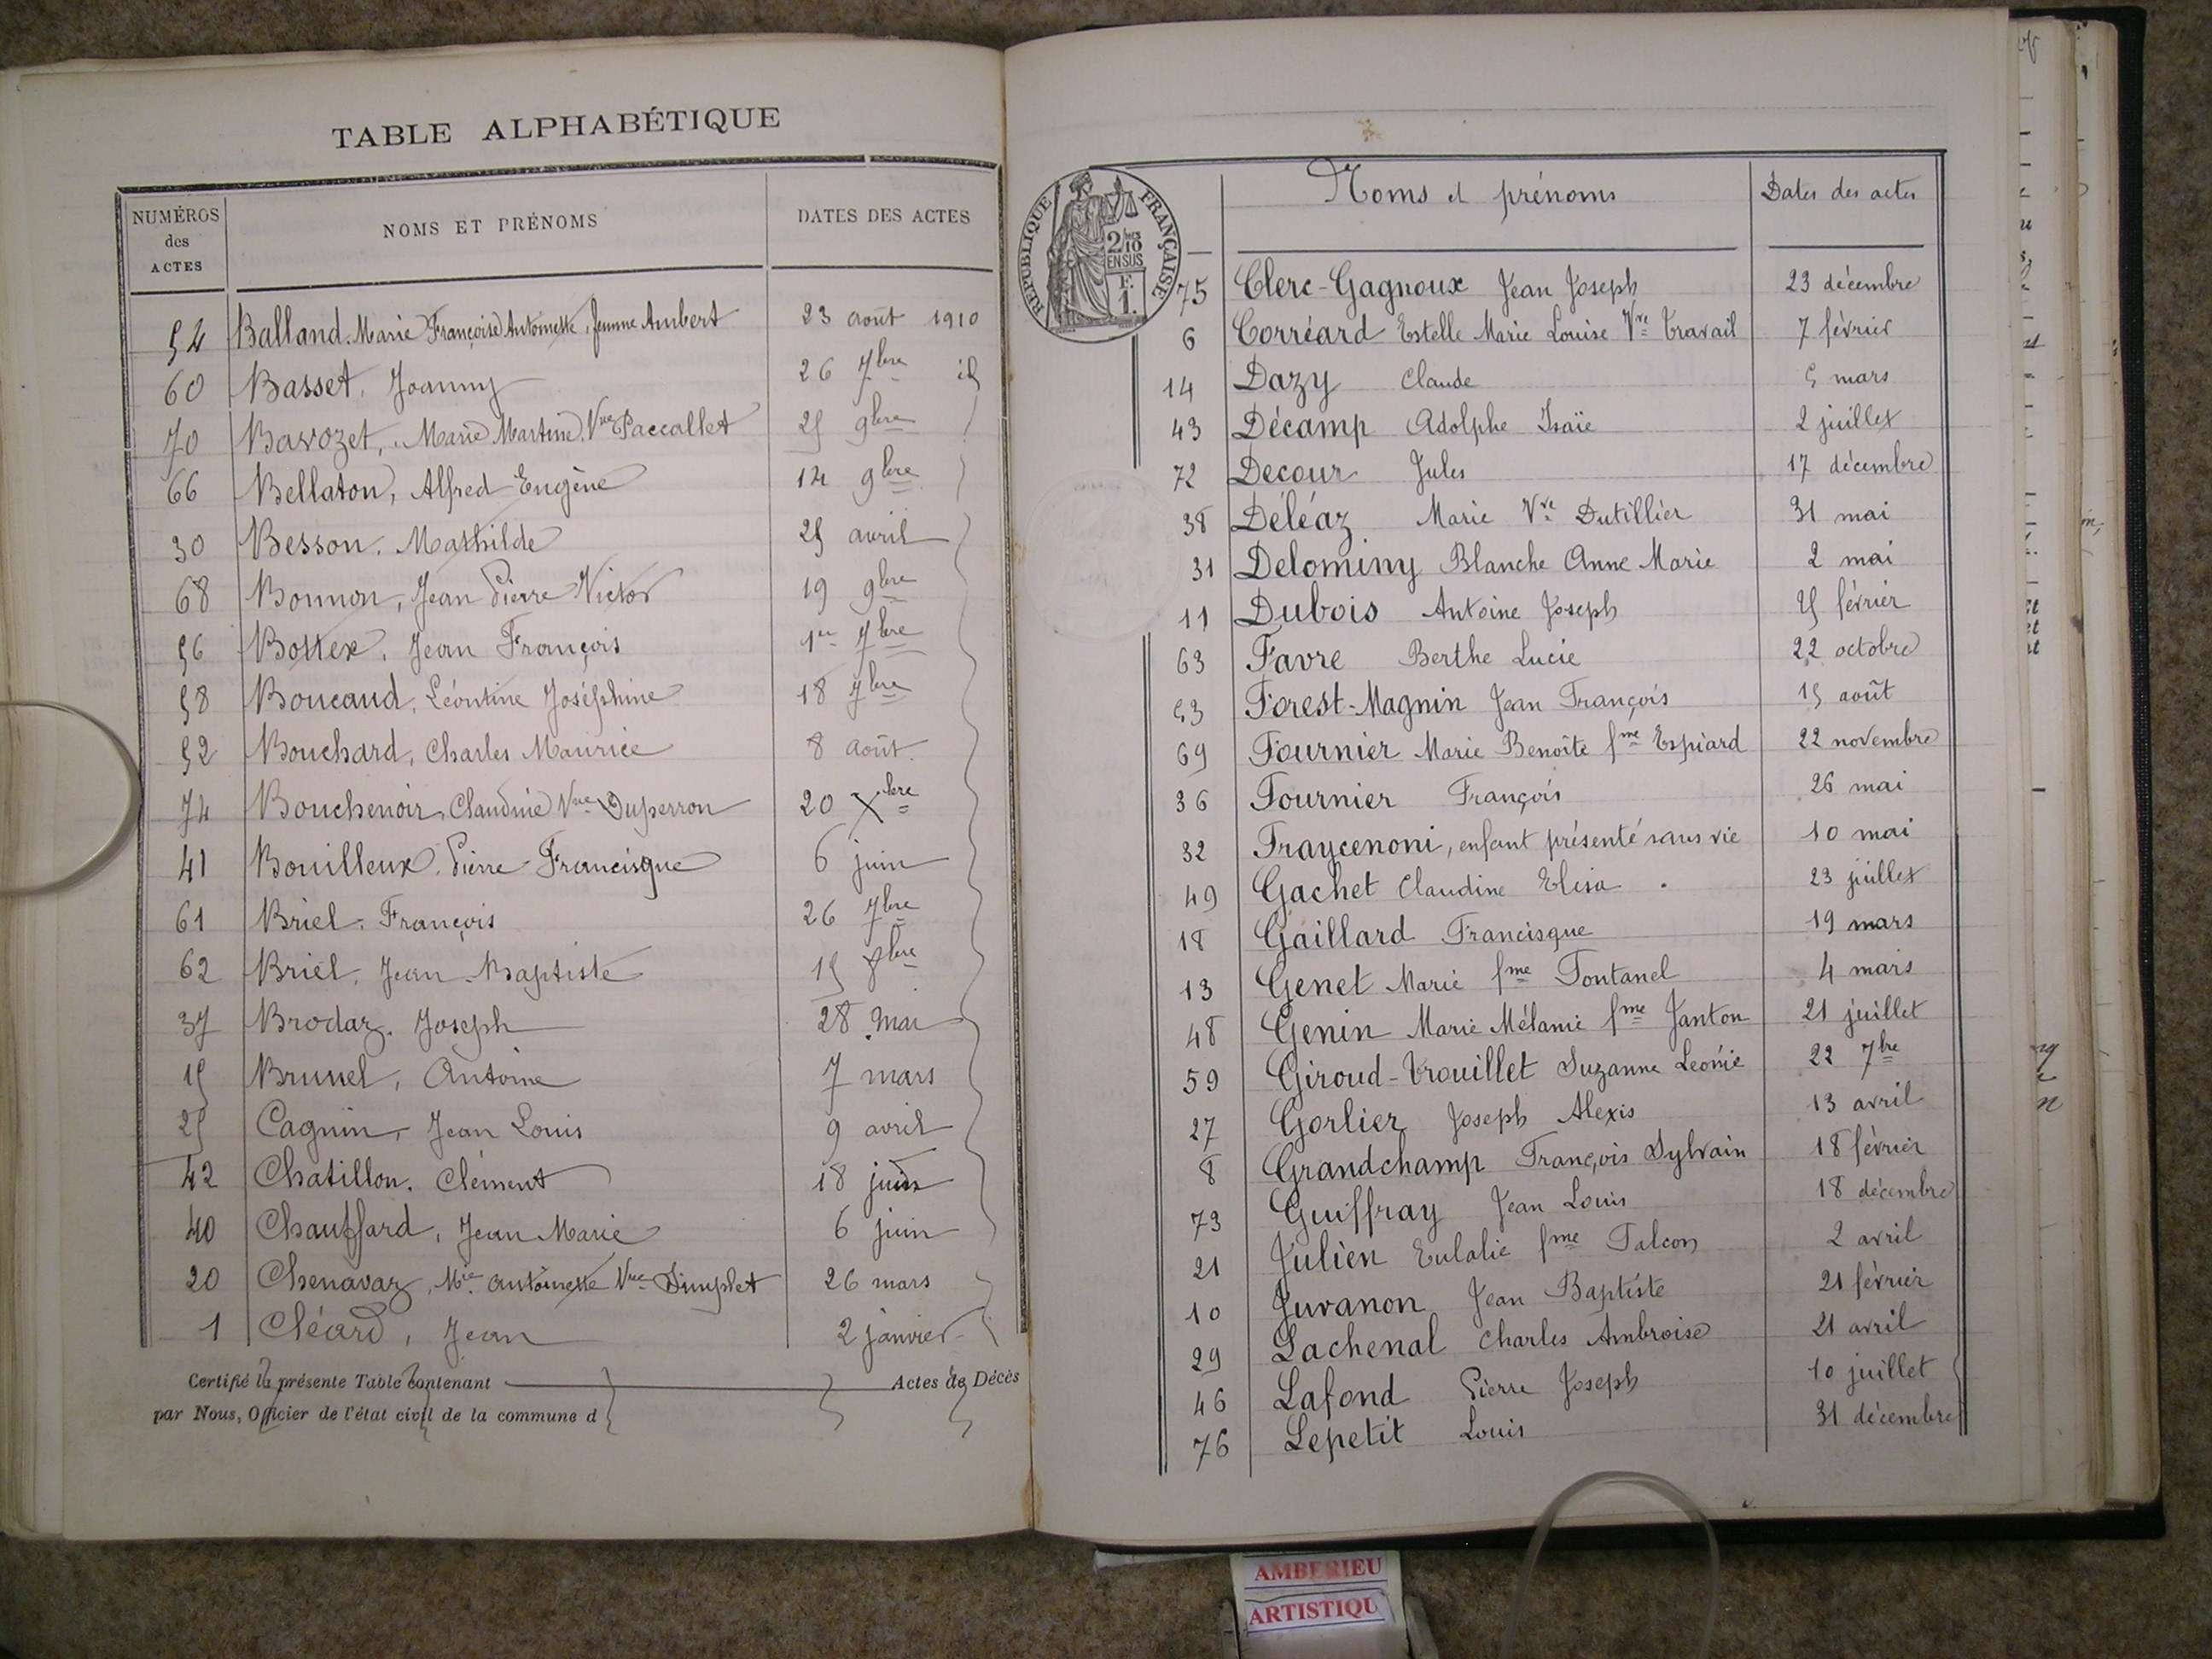 TABLE ALPHABÉTIQUE
NUMÉROS des ACTES NOMS ET PRÉNOMS DATES DES ACTES
54 Balland. Marie Françoise Antoinette, femme Ambert 23 août 1910
60 Basset, Joanny 26 7bre id
70 Bavozet, Marie Martine, Vve Paccallet 25 9bre
66 Bellaton, Alfred Eugène 14 9bre
30 Besson. Mathilde 25 avril
68 Bonnon, Jean Pierre Victor 19 9bre
56 Bottex, Jean François 1er 7bre
58 Boucaud, Léontine Joséphine 18 7bre
52 Bouchard, Charles Maurice 8 août
74 Bouchenoir, Claudine Vve Duperron 20 Xbre
41 Bouilleux, Pierre Francisque 6 juin
61 Briel, François 26 7bre
62 Briel, Jean-Baptiste 15 8bre
37 Brodaz. Joseph 28 mai
15 Brunel, Antoine 7 mars
25 Cagnin, Jean Louis 9 avril
42 Chatillon. Clément 18 juin
40 Chauffard, Jean Marie 6 juin
20 Chenavaz, Mie Antoinette Vve Dimplet 26 mars
1 Cléard, Jean 2 janvier
Certifié la présente Table contenant Actes de Décès
par Nous, Officier de l'état civil de la commune d
REPUBLIQUE FRANÇAISE
2/10
EN SUS
F.
1.
Noms et prénoms Dates des actes
75 Clerc-Gagnoux Jean Joseph 23 décembre
6 Corréard Estelle Marie Louise Vve Travail 7 février
14 Dazy Claude 5 mars
43 Décamp Adolphe Isaïe 2 juillet
72 Decour Jules 17 décembre
38 Déléaz Marie Vve Dutillier 31 mai
31 Delominy Blanche Anne Marie 2 mai
11 Dubois Antoine Joseph 25 février
63 Favre Berthe Lucie 22 octobre
53 Forest-Magnin Jean François 15 août
69 Fournier Marie Benoîte fme Espiard 22 novembre
36 Fournier François 26 mai
32 Fraycenoni, enfant présenté sans vie 10 mai
49 Gachet Claudine Elisa 23 juillet
18 Gaillard Francisque 19 mars
13 Genet Marie fme Fontanel 4 mars
48 Genin Marie Mélanie fme Janton 21 juillet
59 Giroud-Trouillet Suzanne Léonie 22 7bre
27 Gorlier Joseph Alexis 13 avril
8 Grandchamp François Sylvain 18 février
73 Guiffray Jean Louis 18 décembre
21 Julien Eulalie fme Falcon 2 avril
10 Juvanon Jean Baptiste 21 février
29 Lachenal Charles Ambroise 21 avril
46 Lafond Pierre Joseph 10 juillet
76 Lepetit Louis 31 décembre
AMBERIEU
ARTISTIQU